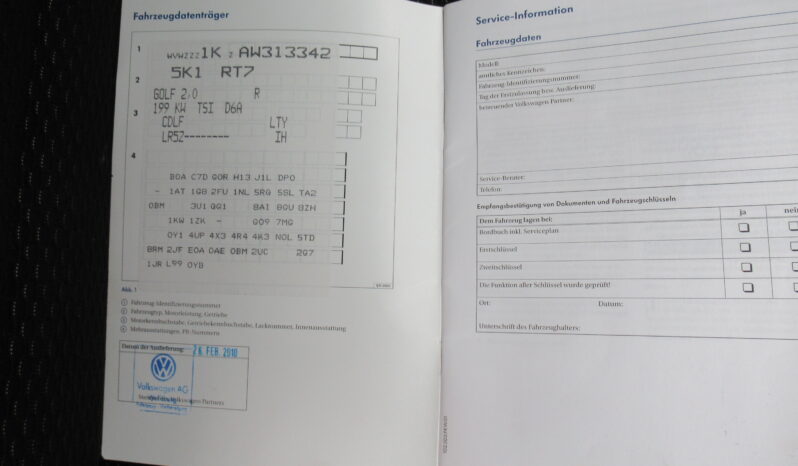 Fahrzeugdatenträger
1 WVWZZZ 1K Z AW313342
5K1 RT7
2
GOLF 2,0 R
199 KW TSI D6A
3
CDLF LTY
LR5Z-------- IH
4
BOA C7D GOR H13 J1L DPO
- 1AT 1G8 2FU 1NL 5RQ 5SL TA2
OBM 3U1 QQ1 8AI 8GU 8ZH
1KW 1ZK - GO9 7MG
OY1 4UP 4X3 4R4 4K3 NOL 5TD
BRM 2JF EOA OAE OBM 2UC 2Q7
1JR L99 OYB
Abb. 1
1 Fahrzeug-Identifizierungsnummer
2 Fahrzeugtyp, Motorleistung, Getriebe
3 Motorkennbuchstabe, Getriebekennbuchstabe, Lacknummer, Innenausstattung
4 Mehrausstattungen, PR-Nummern
Datum der Auslieferung: 26. FEB. 2010
Volkswagen AG
Service-Information
Fahrzeugdaten
Modell:
amtliches Kennzeichen:
Fahrzeug-Identifizierungsnummer:
Tag der Erstzulassung bzw. Auslieferung:
betreuender Volkswagen Partner:
Service-Berater:
Telefon:
Empfangsbestätigung von Dokumenten und Fahrzeugschlüsseln
Dem Fahrzeug lagen bei: ja nein
Bordbuch inkl. Serviceplan
Erstschlüssel
Zweitschlüssel
Die Funktion aller Schlüssel wurde geprüft!
Ort: Datum:
Unterschrift des Fahrzeughalters: